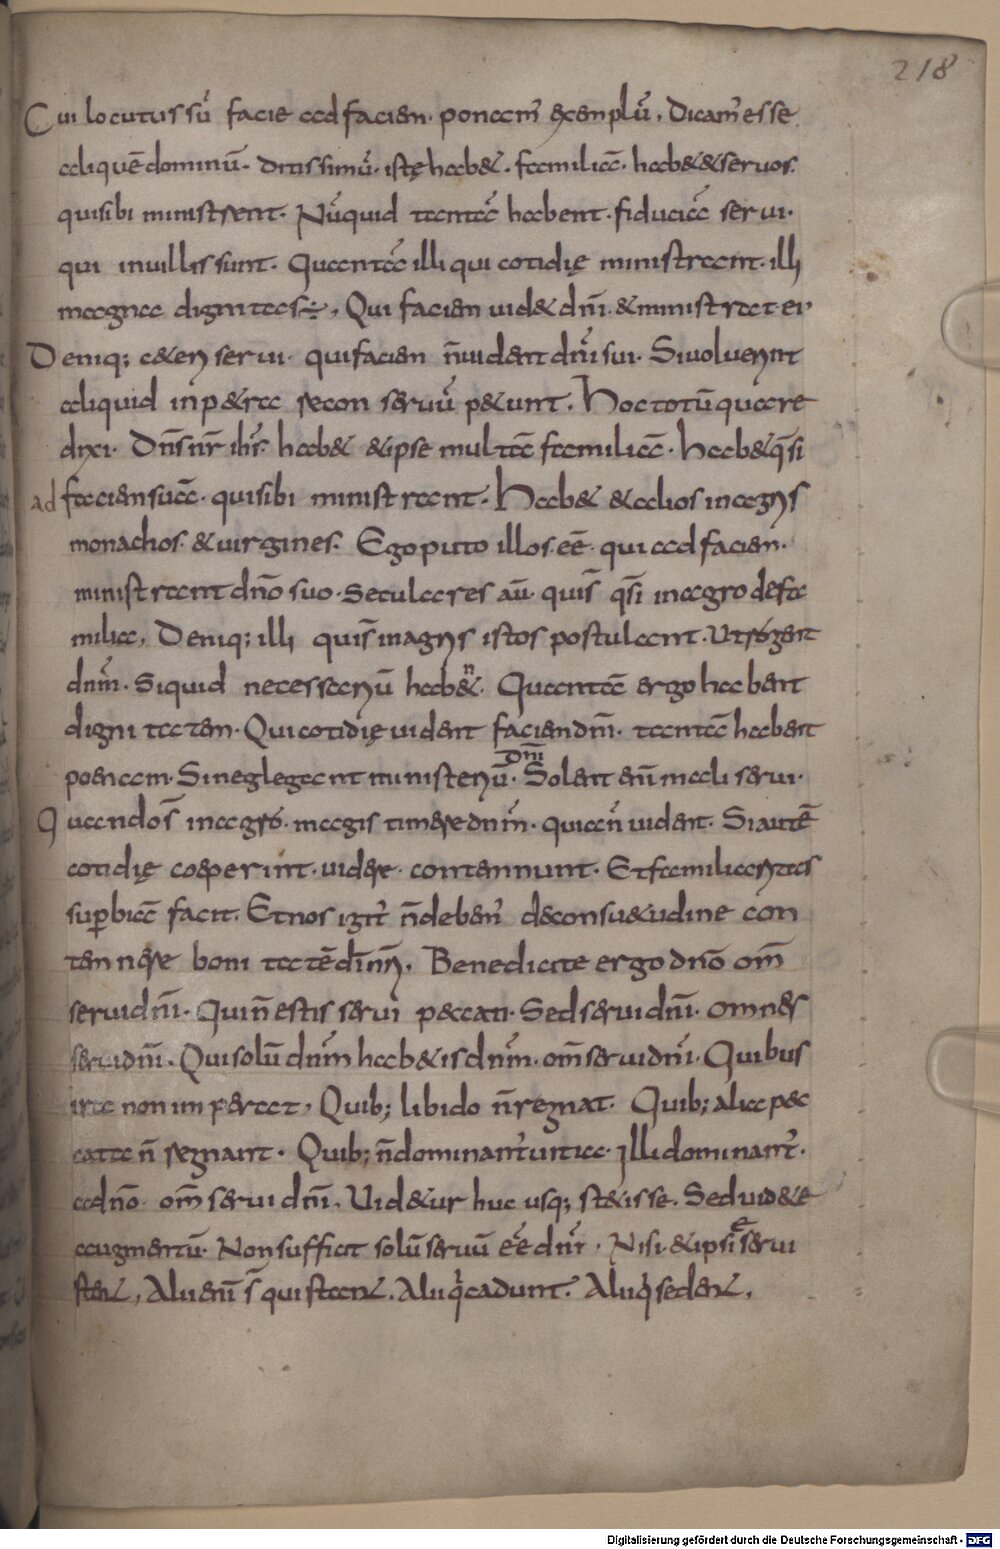 218
Cui locutus sū facie ad faciem. ponam̄ exemplū. Dicam̄ esse
aliquē dominū. ditissimū. istę hab&. familiā. hab& & seruos.
qui sibi ministrent. Nūquid tantā habent. fiduciā serui.
qui in uillis sunt. Quantā illi qui cotidię ministrant. illi
magna dignitas ÷. Qui faciem uid& dnī. & ministrat ei
Deniq; c&eri serui. qui faciem n̄ uident dnī sui. Si uoluerint
aliquid inp&rare recon seruū p&unt. Hoc totū quare
dixi. Dn̄s nr̄ ihs̄. hab& & ipse multā familiā. hab& q̄si
ad faciem suā. qui sibi ministrant. Hab& & alios in agris
monachos. & uirgines. Ego puto illos. eē. qui ad faciem.
ministrant dn̄o suo. Seculares aū. qui s̄ q̄si in agro de fa
milia. Deniq; illi qui s̄ in agris istos postulant. Ut rogent
dnm̄. Si quid necessariū habent. Quantā ergo habent
dignitatem. Qui cotidię uident faciem dnī. tantā habent
poenam. Si neglegant ministeriū. Solent enī mali serui.
dnī
Quando s̄ in agro. magis timere dnm̄. qui eū n̄ uident. Si autē
cotidię coeperint. uidere. contemnunt. Et familiaritas
sup̄biā facit. Et nos igit̄ n̄ debem̄ de consu&udine con
temnere bonitatē dī nr̄i. Benedicite ergo dn̄o om̄s
serui dnī. Qui n̄ estis serui peccati. Sed serui dnī. omnes
serui dnī. Qui solū dnm̄ hab&is dnm̄. om̄s serui dnī. Quibus
ira non imperat. Quib; libido n̄ regnat. Quib; alia pec
cata n̄ regnant. Quib; n̄ dominant̄ uitia. illi dominant̄.
ad dn̄o. om̄s serui dnī. Uid&ur huc usq; st&isse. Sed uid&e
augmentū. Non sufficit solū seruū eē dnī. Nisi & ipsi serui
stent. Alii enī s̄ qui stant. Alii q̄ cadunt. Alii q̄ sedent.
Digitalisierung gefördert durch die Deutsche Forschungsgemeinschaft - DFG